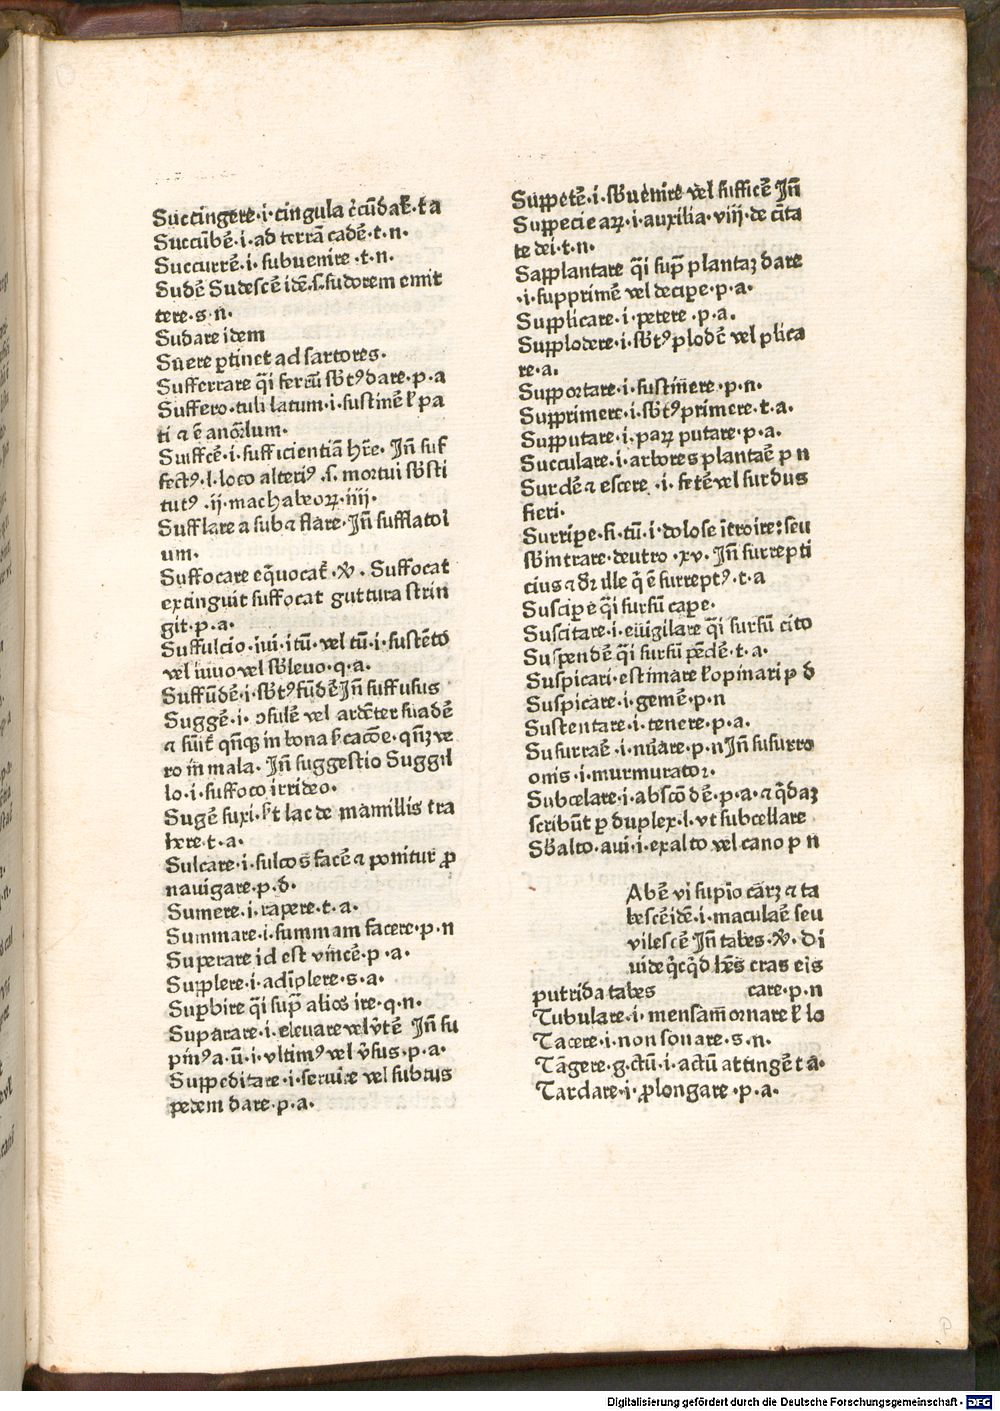 Succingere·i·cingula c̄cūdaꝶ·t a
Succūbē·i·ad terrā cadē·t·n·
Succurrē·i·subuenire·t·n·
Sudē Sudescē idē·s·sudorem emit
tere·s·n·
Sudare idem
Suere ꝑtinet ad sartores·
Sufferrare q̄i ferrū sb̄tꝰ dare·p·a
Suffero·tuli latum·i·sustinē ł pa
ti ⁊ ē anōrlum·
Sufficē·i·sufficientiā hr̄e· Jn̄ suf
fectꝰ·l·loco alteriꝰ·s·mortui sb̄sti
tutꝰ·ij·machabeoꝝ·iiij·
Sufflare a sub ⁊ flare·Jn̄ sufflatoi
um·
Suffocare eq̄uocat̄·xͦ· Suffocat
extinguit suffocat guttura strin
git·p·a·
Suffulcio·iui·itū·vel tū·i·sustēto
vel iuuo vel sb̄leuo·q·a·
Suffūdē·i·sb̄tꝰ fūdē Jn̄ suffusus
Suggē·i·ɔsulē vel ardēter suadē
⁊ sūit̄ qn̄qꝫ in bona ł cacōe·qn̄qꝫ ve
ro in mala· Jn̄ suggestio Suggil
lo·i·suffoco irrideo·
Sugē suxi·ł t lac de mamillis tra
here·t·a·
Sulcare·i·sulcos facē ⁊ ponitur ꝓ
nauigare·p·d·
Sumere·i·rapere·t·a·
Summare·i·summam facere·p·n
Superare id est vincē·p·a·
Supplere·i·adīplere·s·a·
Suꝑbire q̄i supͣ alios ire·q·n·
Suꝑarare·i·eleuare vel v̄tē Jn̄ su
pm̄ꝰ a·ū·i·vltimꝰ vel v̄sus·p·a·
Suppeditare·i·seruire vel subtus
pedem dare·p·a·
Suppetē·i·sb̄uenire vel sufficē Jn̄
Suppecie aꝝ·i·auxilia·viij·de cīta
te dei·t·n·
Sapplantare q̄i supͣ plantaꝫ dare
·i·supprimē vel deciꝑe·p·a·
Supplicare·i·petere·p·a·
Supplodere·i·sb̄tꝰ plodē vel plica
re·a·
Supportare·i·sustinere·p·n·
Supprimere·i·sb̄tꝰ primere·t·a·
Supputare·i·paꝝ putare·p·a·
Succulare·i·arbores plantaē p n
Surdē ⁊ escere·i·fetē vel surdus
fieri·
Surriꝑe·fi·tū·i·dolose ītroire: seu
sb̄intrare·deutro·xv·Jn̄ surrepti
cius ⁊ dr̄ ille q̄ ē surreptꝰ·t·a
Susciꝑe q̄i sursū caꝑe·
Suscitare·i·euigilare q̄i sursū cito
Suspendē q̄i sursū pēdē·t·a·
Suspicari·estimare ł opinari p d
Suspicare·i·gemē·p·n
Sustentare·i·tenere·p·a·
Susurraē·i·nūare·p·n Jn̄ susurro
onis·i·murmurator·
Subcelare·i·abscōdē·p·a·⁊ q̄daꝫ
scribūt ꝑ duplex·l·vt subcellare
Sb̄alto·aui·i·exalto vel cano p n
Abē vi supio cārꝫ ⁊ ta
bescē idē·i·maculaē seu
vilescē Jn̄ tabes·xͦ· Di
uide q̄cq̄d hēs cras eis
putrida tabes care·p·n
Tubulare·i·mensam̄ ornare ł lo
Tacere·i·non sonare·s·n·
Tāgere·g·ctū·i·actū attingē t a·
Tardare·i·ꝓlongare·p·a·
Digitalisierung gefördert durch die Deutsche Forschungsgemeinschaft - DFG